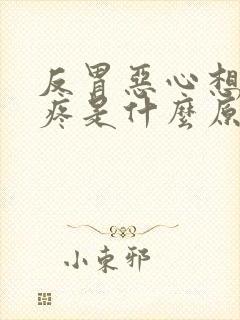 反胃惡心想
疼是什麼原
小束邪